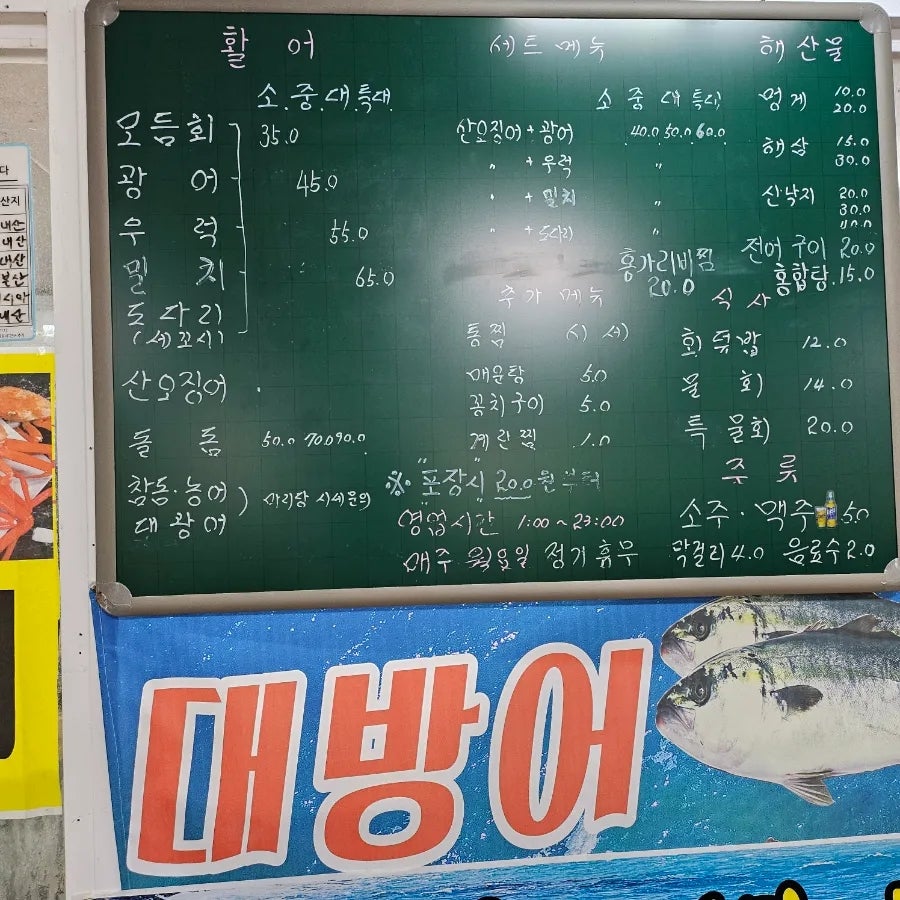 활 어
소.중.대.특대.
모듬회 35.0
광 어 45.0
우 럭 55.0
밀 치 65.0
도다리
(세꼬시)
산오징어
돌 돔 50.0 70.0 90.0
참돔·농어
대광어
마리당 시세문의
세트메뉴
소 중 대 특대
산오징어+광어 40.0 50.0 60.0
〃 +우럭 〃
〃 +밀치 〃
〃 +도다리 〃
홍가리비찜
20.0
추가 메뉴
통찜 (시 세)
매운탕 5.0
꽁치구이 5.0
계란찜 1.0
※ "포장시" 20.0원부터
영업시간 1:00~23:00
매주 월요일 정기휴무
해산물
멍게 10.0
20.0
해삼 15.0
30.0
산낙지 20.0
30.0
전어구이 20.0
홍합탕.15.0
식 사
회덮밥 12.0
물 회 14.0
특물회 20.0
주 류
소주·맥주 5.0
막걸리 4.0 음료수 2.0
다
산지
내산
내산
내산
내산
대방어